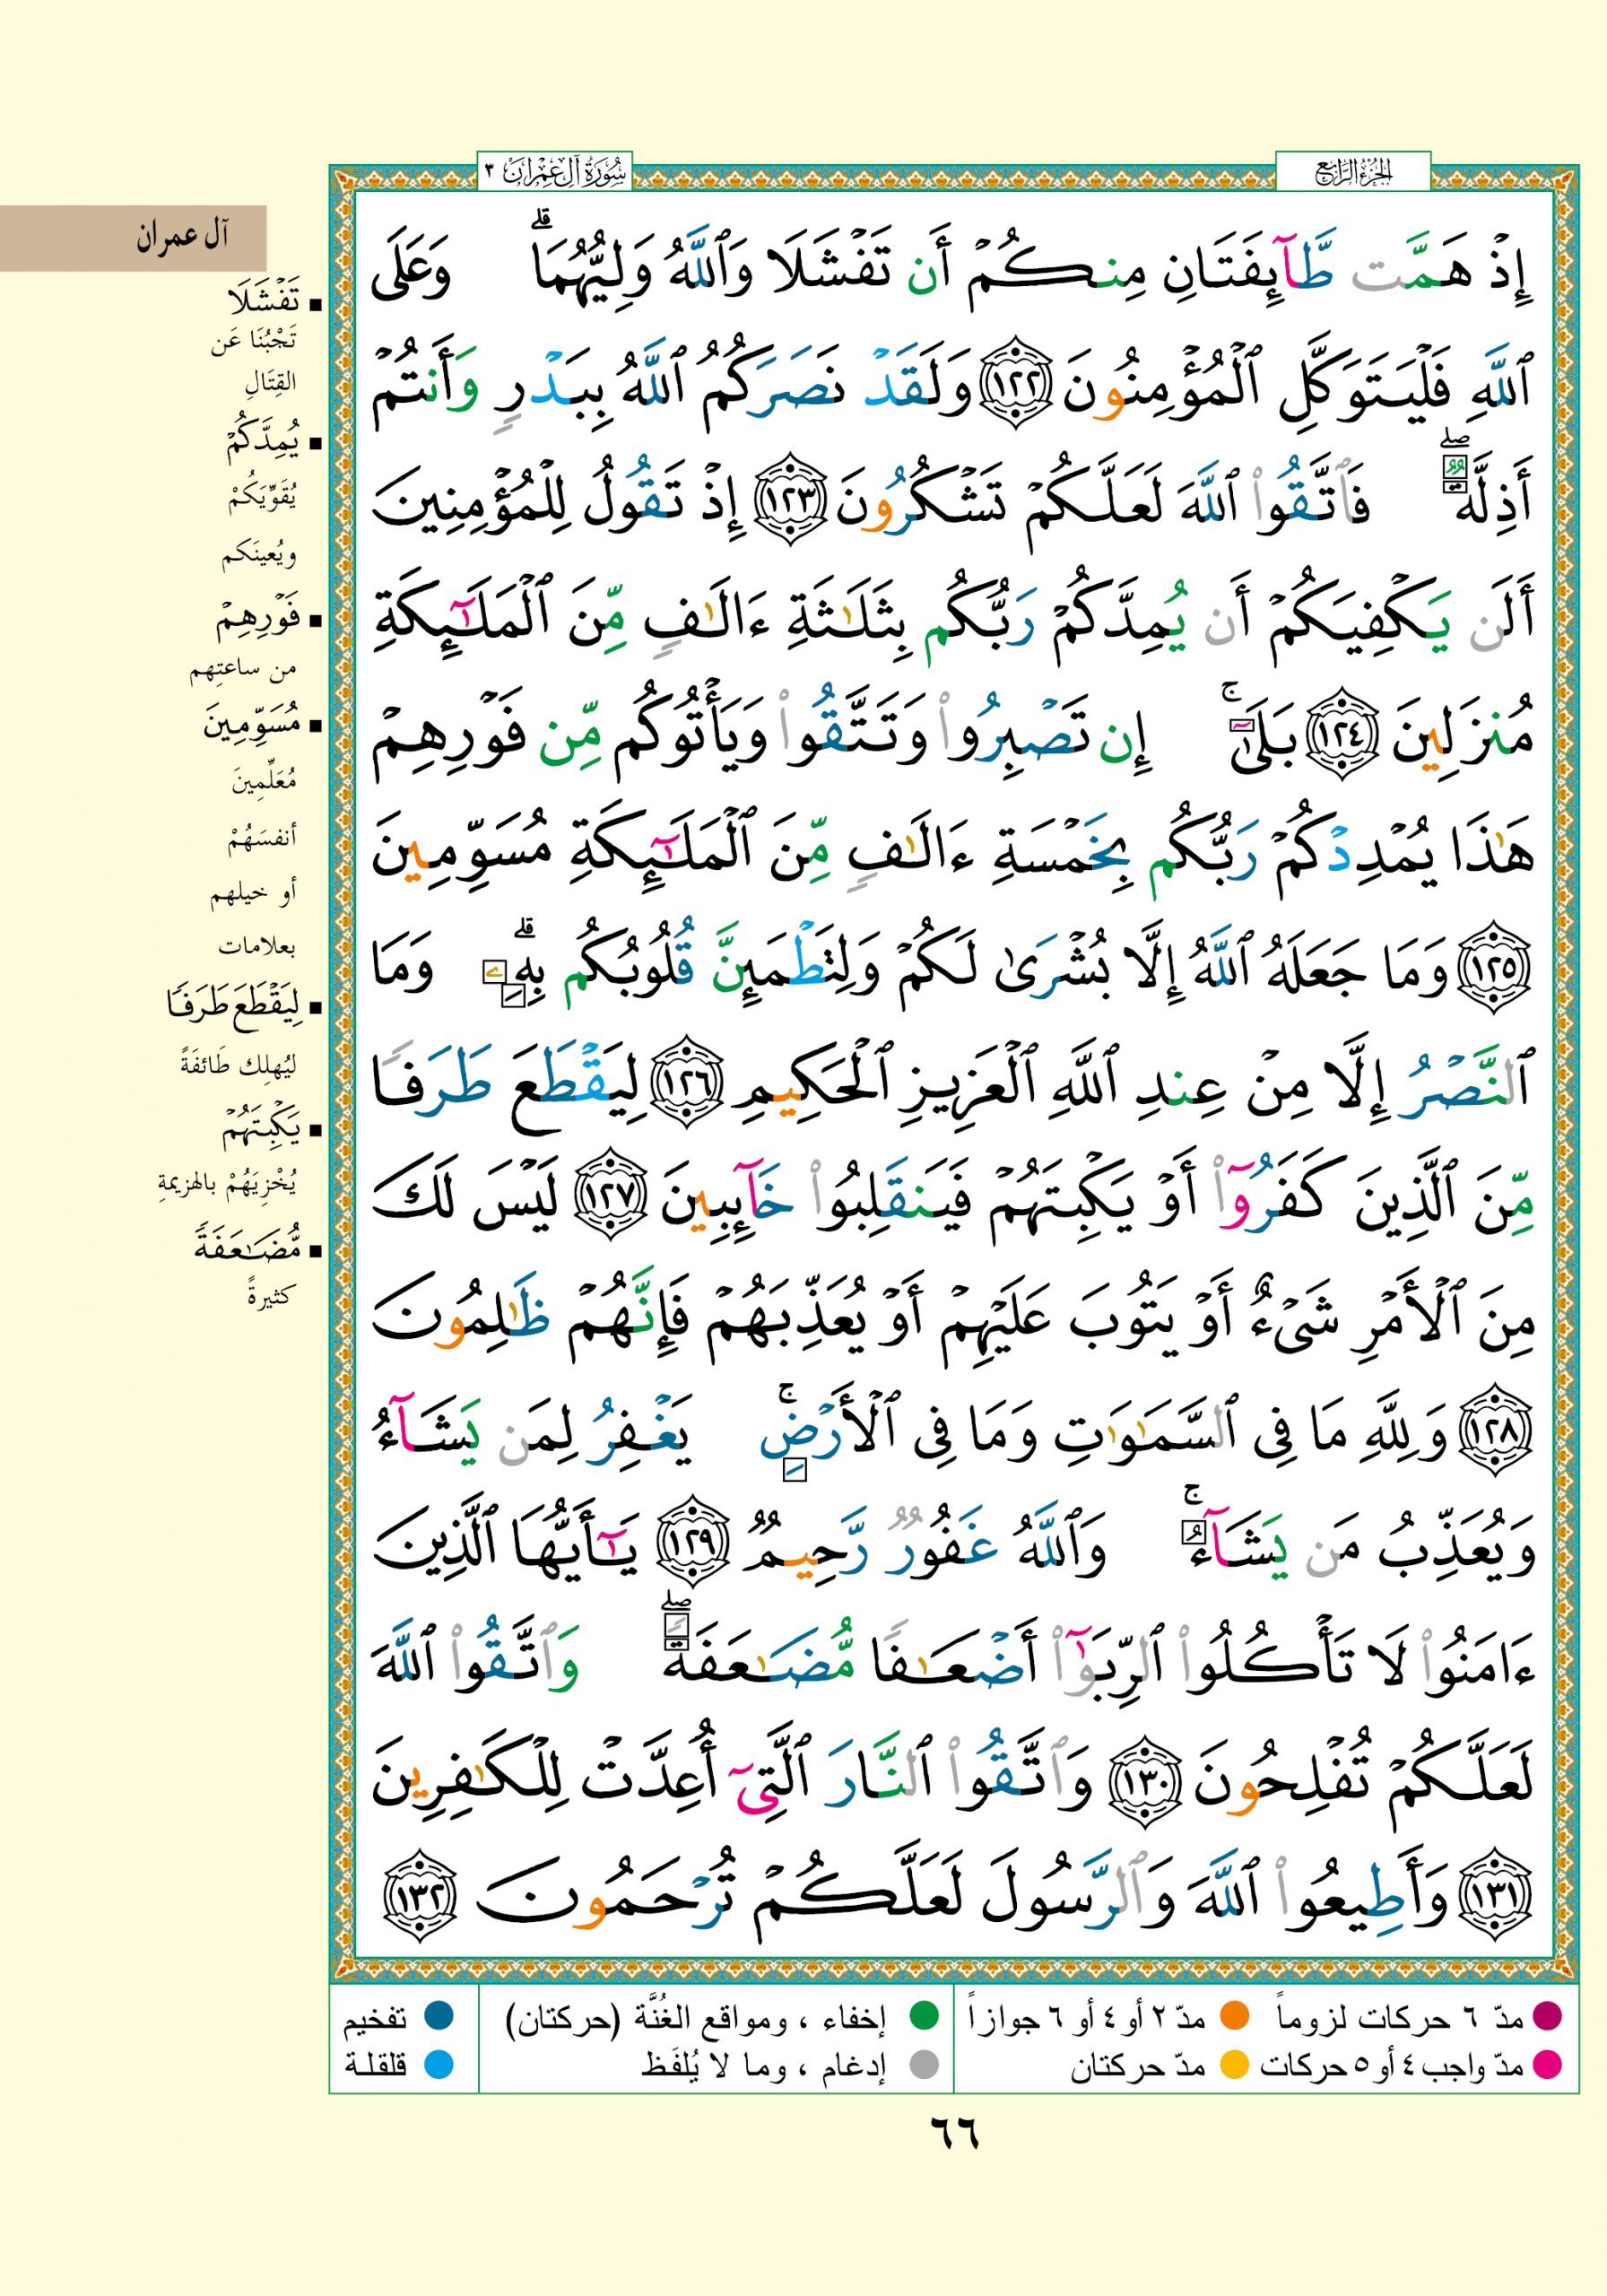 الجزء الرابع
سورة آل عمران ٣
إِذْ هَمَّت طَّآئِفَتَانِ مِنكُمْ أَن تَفْشَلَا وَٱللَّهُ وَلِيُّهُمَا ۗ وَعَلَى
ٱللَّهِ فَلْيَتَوَكَّلِ ٱلْمُؤْمِنُونَ ١٢٢ وَلَقَدْ نَصَرَكُمُ ٱللَّهُ بِبَدْرٍ وَأَنتُمْ
أَذِلَّةٌ ۖ فَٱتَّقُوا۟ ٱللَّهَ لَعَلَّكُمْ تَشْكُرُونَ ١٢٣ إِذْ تَقُولُ لِلْمُؤْمِنِينَ
أَلَن يَكْفِيَكُمْ أَن يُمِدَّكُمْ رَبُّكُم بِثَلَـٰثَةِ ءَالَـٰفٍ مِّنَ ٱلْمَلَـٰٓئِكَةِ
مُنزَلِينَ ١٢٤ بَلَىٰٓ ۚ إِن تَصْبِرُوا۟ وَتَتَّقُوا۟ وَيَأْتُوكُم مِّن فَوْرِهِمْ
هَـٰذَا يُمْدِدْكُمْ رَبُّكُم بِخَمْسَةِ ءَالَـٰفٍ مِّنَ ٱلْمَلَـٰٓئِكَةِ مُسَوِّمِينَ
١٢٥ وَمَا جَعَلَهُ ٱللَّهُ إِلَّا بُشْرَىٰ لَكُمْ وَلِتَطْمَئِنَّ قُلُوبُكُم بِهِۦ ۗ وَمَا
ٱلنَّصْرُ إِلَّا مِنْ عِندِ ٱللَّهِ ٱلْعَزِيزِ ٱلْحَكِيمِ ١٢٦ لِيَقْطَعَ طَرَفًا
مِّنَ ٱلَّذِينَ كَفَرُوٓا۟ أَوْ يَكْبِتَهُمْ فَيَنقَلِبُوا۟ خَآئِبِينَ ١٢٧ لَيْسَ لَكَ
مِنَ ٱلْأَمْرِ شَىْءٌ أَوْ يَتُوبَ عَلَيْهِمْ أَوْ يُعَذِّبَهُمْ فَإِنَّهُمْ ظَـٰلِمُونَ
١٢٨ وَلِلَّهِ مَا فِى ٱلسَّمَـٰوَٰتِ وَمَا فِى ٱلْأَرْضِ ۚ يَغْفِرُ لِمَن يَشَآءُ
وَيُعَذِّبُ مَن يَشَآءُ ۚ وَٱللَّهُ غَفُورٌ رَّحِيمٌ ١٢٩ يَـٰٓأَيُّهَا ٱلَّذِينَ
ءَامَنُوا۟ لَا تَأْكُلُوا۟ ٱلرِّبَوٰٓا۟ أَضْعَـٰفًا مُّضَـٰعَفَةً ۖ وَٱتَّقُوا۟ ٱللَّهَ
لَعَلَّكُمْ تُفْلِحُونَ ١٣٠ وَٱتَّقُوا۟ ٱلنَّارَ ٱلَّتِىٓ أُعِدَّتْ لِلْكَـٰفِرِينَ
١٣١ وَأَطِيعُوا۟ ٱللَّهَ وَٱلرَّسُولَ لَعَلَّكُمْ تُرْحَمُونَ ١٣٢
آل عمران
تَفْشَلَا
تَجْبُنَا عَن
القِتَالِ
يُمِدَّكُمْ
يُقَوِّيَكُمْ
ويُعينَكم
فَوْرِهِمْ
من ساعتِهم
مُسَوِّمِينَ
مُعَلِّمِينَ
أنفسَهُمْ
أو خيلهم
بعلامات
لِيَقْطَعَ طَرَفًا
ليُهلِك طَائفَةً
يَكْبِتَهُمْ
يُخْزِيَهُمْ بالهزيمةِ
مُّضَـٰعَفَةً
كثيرةً
مدّ ٦ حركات لزوماً
مدّ ٢ أو ٤ أو ٦ جوازاً
مدّ واجب ٤ أو ٥ حركات
مدّ حركتان
إخفاء ، ومواقع الغُنَّة (حركتان)
إدغام ، وما لا يُلفَظ
تفخيم
قلقلة
٦٦